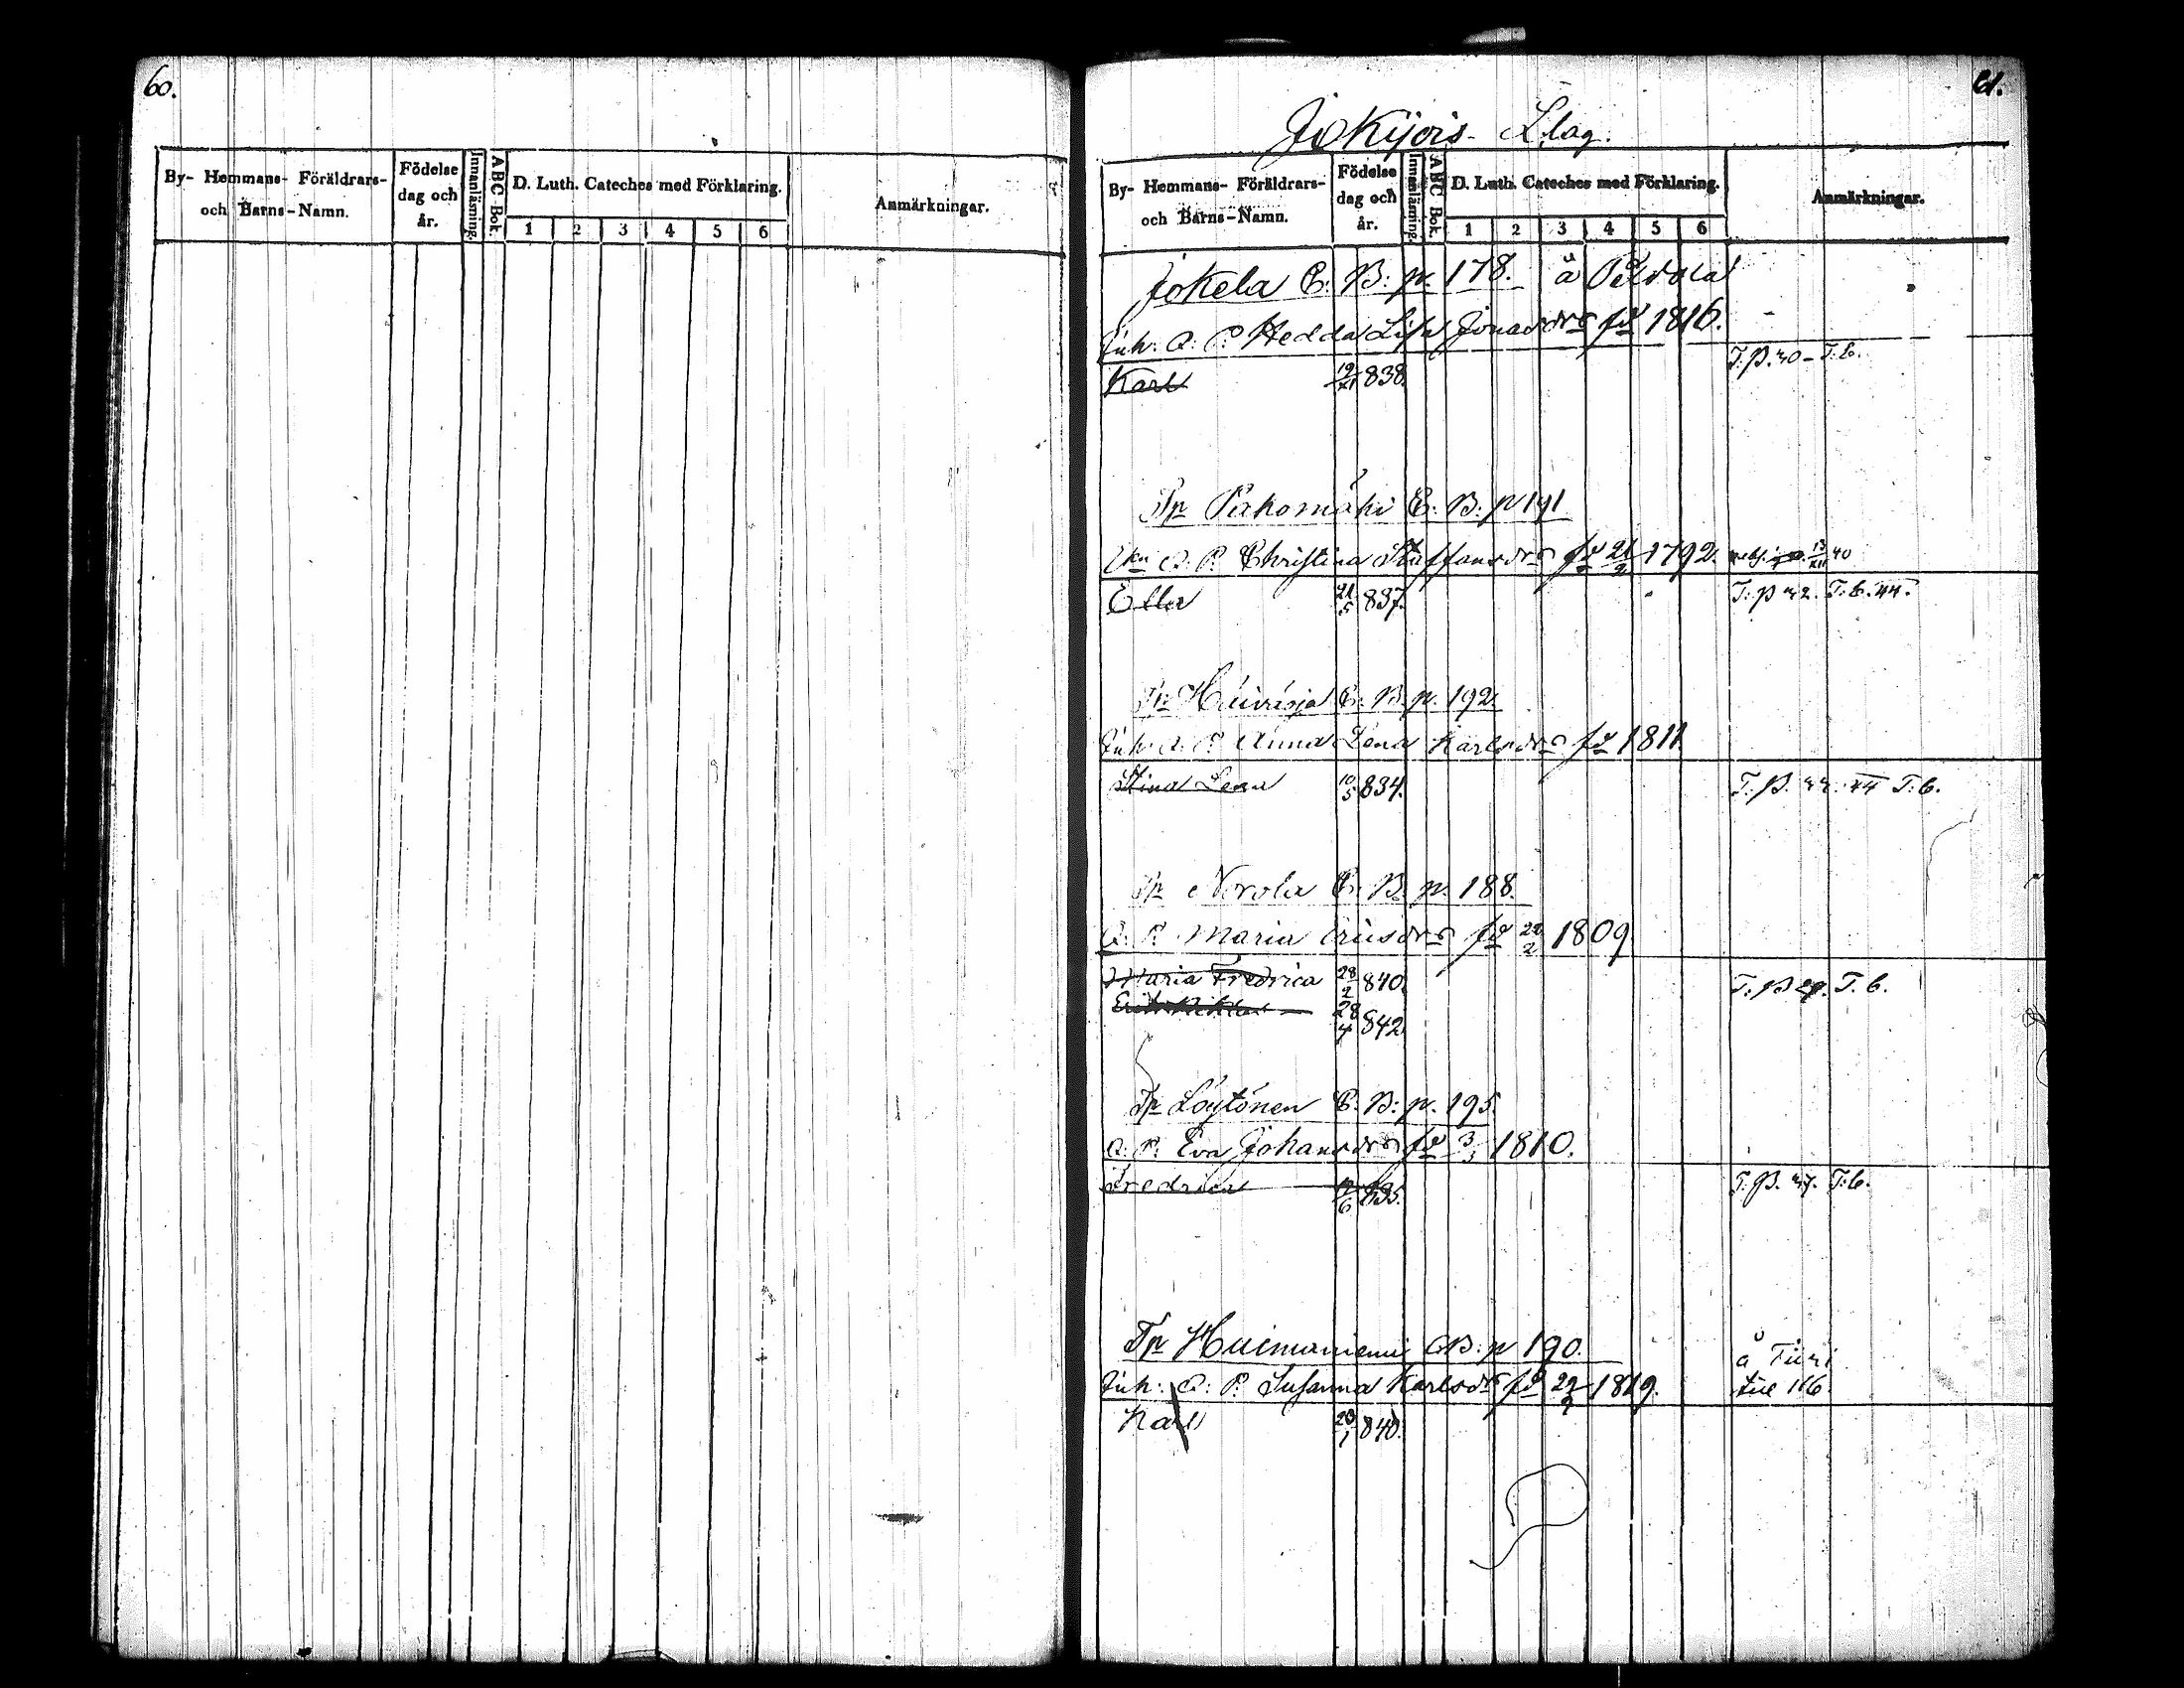 60.
By- Hemmans- Föräldrars-
och Barns-Namn.
Födelse
dag och
år.
Innanläsning.
ABC Bok.
D. Luth. Cateches med Förklaring.
1 2 3 4 5 6
Anmärkningar.
61.
Jokijois- Llag.
By- Hemmans- Föräldrars-
och Barns-Namn.
Födelse
dag och
år.
Innanläsning.
ABC Bok.
D. Luth. Cateches med Förklaring.
1 2 3 4 5 6
Anmärkningar.
Jokela C. B: p. 178. å
Inh: Q: P: Hedda Lisa Jonasdr fd 1816.
Karl 19/XI 838. T: p. 40 - T. 6.
Tp Pahomäki C. B: p 191
Q: P: Christina Staffansdr fd 1792. 13/XII 40
Ella 21/5 837. T: p 42. T. 6. 44.
Tp C. B. p. 192.
Inh: Q: P: Anna Lena Karlsdr fd 1811.
Stina Lena 10/5 834. T. p. 44 T: 6.
Tp Norola C. B. p. 188.
Q: P: Maria Ericsdr fd 22/2 1809
Maria Fredrica 28/2 840. T: p 29. T. 6.
28/4 842.
Tp Löytönen C. B: p. 195.
Q: P: Eva Johansdr fd 1810.
Fredrica 835. T. p. T: 6.
Tp Huimaniemi CB: p 190. å Turi
Inh: Q: P: Susanna Karlsdr fd 1819. 116
Karl 20/1 840.